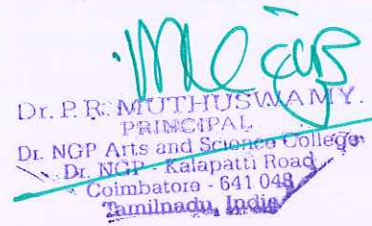 Dr. P. R. MUTHUSWAMY.
PRINCIPAL
Dr. NGP Arts and Science College
Dr. NGP - Kalapatti Road
Coimbatore - 641 048
Tamilnadu, India